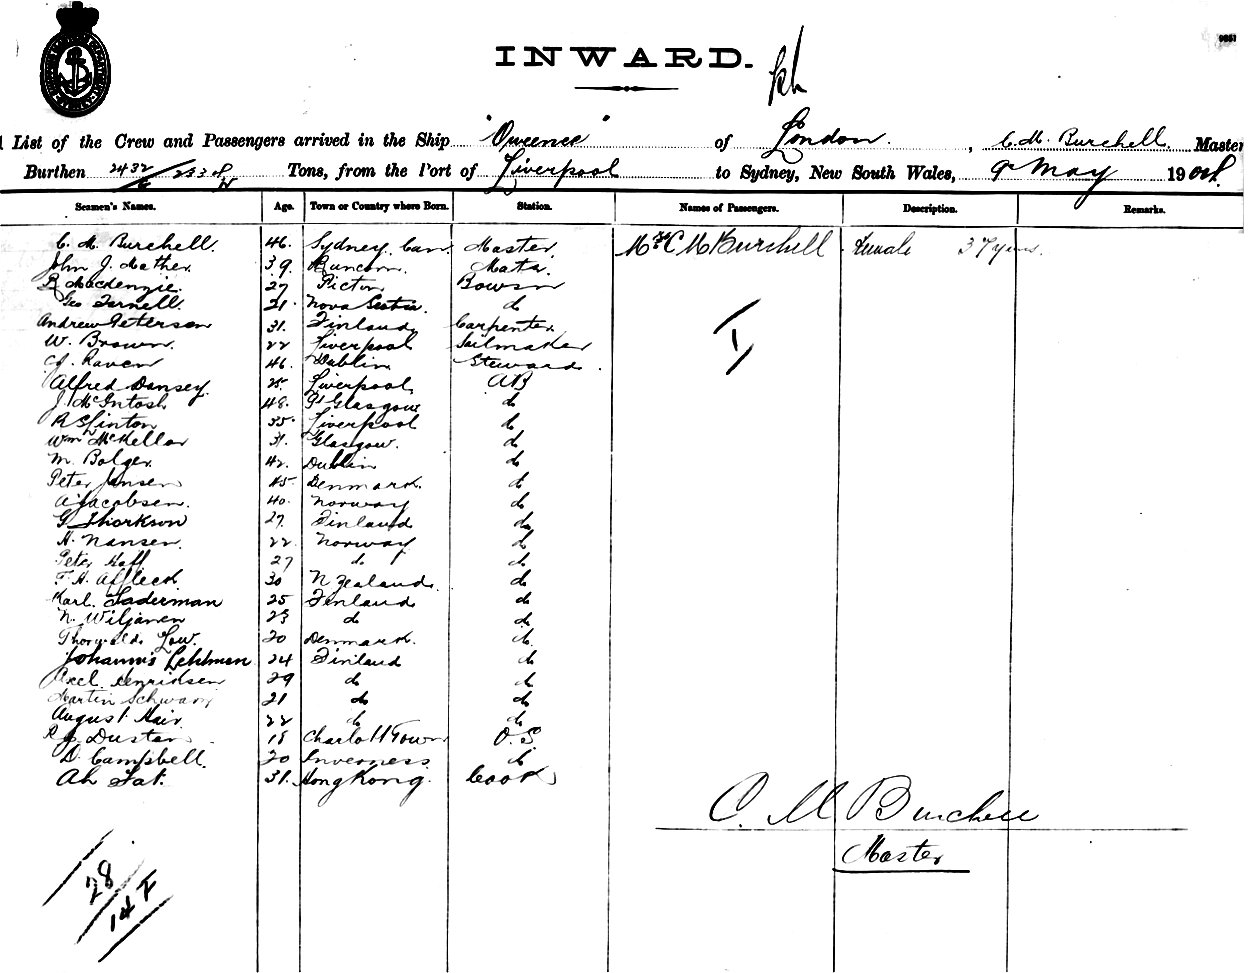 INWARD.
List of the Crew and Passengers arrived in the Ship "Queenee" of London, C. M. Burchell Master
Burthen 2432/ Tons, from the Port of Liverpool to Sydney, New South Wales, 9th May 1904
Seamen's Names. Age. Town or Country where Born. Station. Names of Passengers. Description. Remarks.
C. M. Burchell. 46. Sydney. Can Master. Mrs C M Burchell Female 37 years.
John J. Mather. 39. Runcorn. Mate.
R Mackenzie. 27 Picton Bowsn
Geo Fernell. 21. Nova Scotia. do
Andrew Peterson 31. Finland. Carpenter.
W. Brown. 22 Liverpool Sailmaker
Raven 46. Dublin Steward.
Alfred Dansey. 25. Liverpool. AB
J. McIntosh 48. Pt Glasgow do
R Slinton 35. Liverpool do
Wm McKellar 31. Glasgow. do
M. Bolger. 42. Dublin do
Peter Jansen 45 Denmark. do
A Jacobsen. 40. Norway do
G Thorkson 27. Finland do
H. Nansen. 22 Norway do
Peter Hoff 27 do do
F. H. Affleck 30 N Zealand. do
Karl. Saderman 25 Finland do
N. Wiljanen 23 do do
Thorwald. Low. 20 Denmark. do
Johannis Lehlman 24 Finland do
Axel Henriksen 29 do do
Martin Schwarz 21 do do
August Mair 22 do do
Dustan 18 Charlott Town O.S.
D. Campbell. 20 Inverness do
Ah Fat. 31. Hong Kong. Cook
C. M Burchell
Master
28
14 F